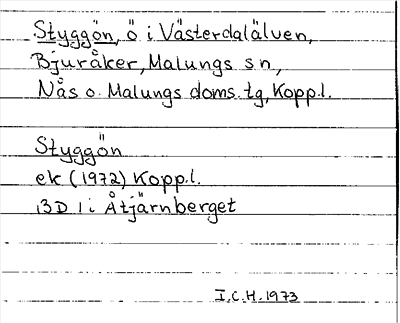 Styggön, ö i Västerdalälven,
Bjuråker, Malungs sn,
Nås o. Malungs doms.tg, Koppl.
Styggön
ek (1972) Koppl.
13D 1 i Åtjärnberget
I.C.H. 1973